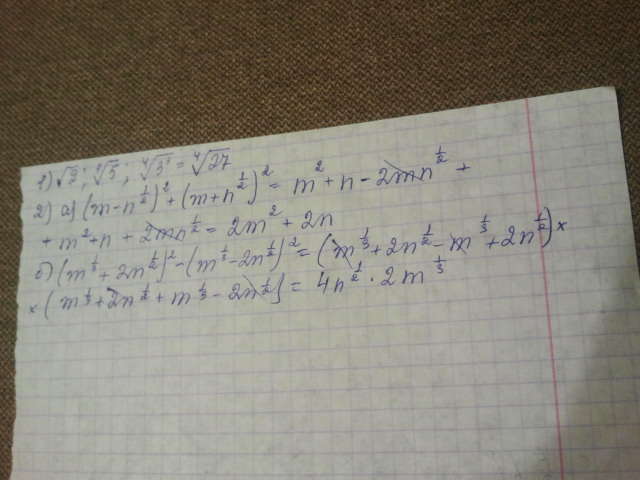 1) √2; ∛5; ⁴√3³ = ⁴√27
2) а) (m-n^½)² + (m+n^½)² = m² + n - 2mn^½ +
+ m² + n + 2mn^½ = 2m² + 2n
б) (m^⅓ + 2n^½)² - (m^⅓ - 2n^½)² = (m^⅓ + 2n^½ - m^⅓ + 2n^½) ×
× (m^⅓ + 2n^½ + m^⅓ - 2n^½) = 4n^½ · 2m^⅓